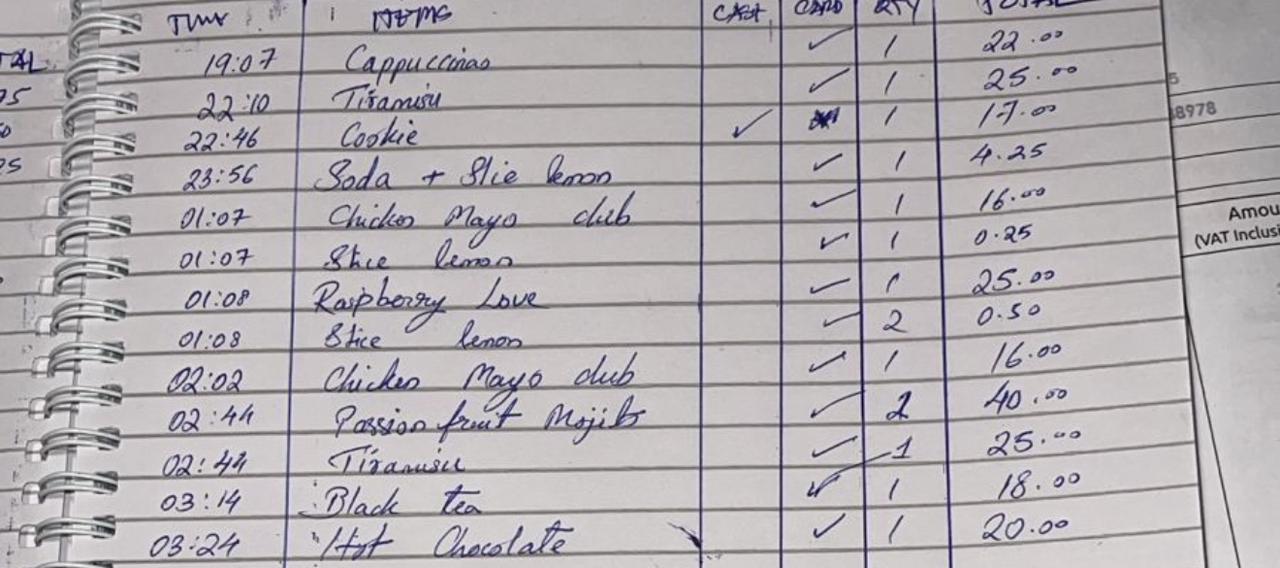 TIME ITEMS CASH CARD QTY TOTAL
19:07 Cappuccino ✓ 1 22.00
22:10 Tiramisu ✓ 1 25.00
22:46 Cookie ✓ 1 17.00
23:56 Soda + Slie lemon ✓ 1 4.25
01:07 Chicken Mayo club ✓ 1 16.00
01:07 Slice lemon ✓ 1 0.25
01:08 Raspberry Love ✓ 1 25.00
01:08 Slice lemon ✓ 2 0.50
02:02 Chicken Mayo club ✓ 1 16.00
02:44 Passion fruit Mojito ✓ 2 40.00
02:44 Tiramisu ✓ 1 25.00
03:14 Black tea ✓ 1 18.00
03:24 Hot Chocolate ✓ 1 20.00
8978
Amou
(VAT Inclusi